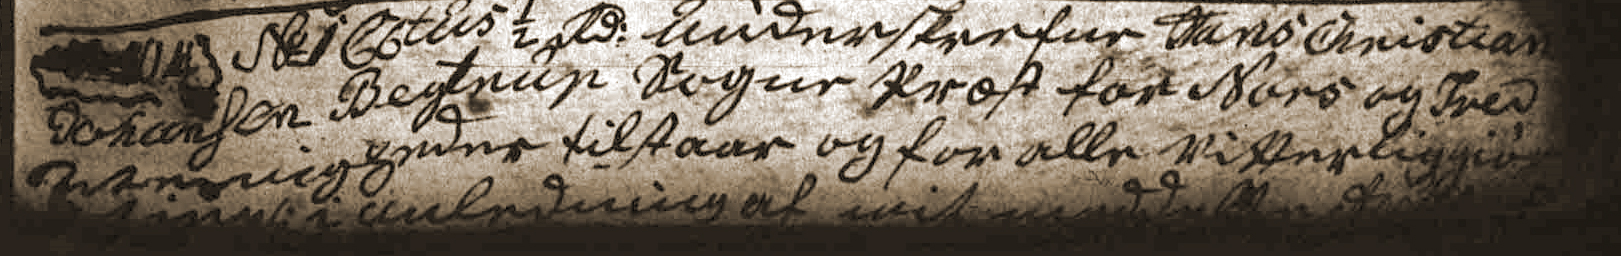 No 1 Ctus ½ Rd: Underskrefne Hans Christian
Johansen Begtrup Sogne Præst for Nors og Tved
Meenigheder tilstaar og for alle Vitterliggiør
i anledning af mit